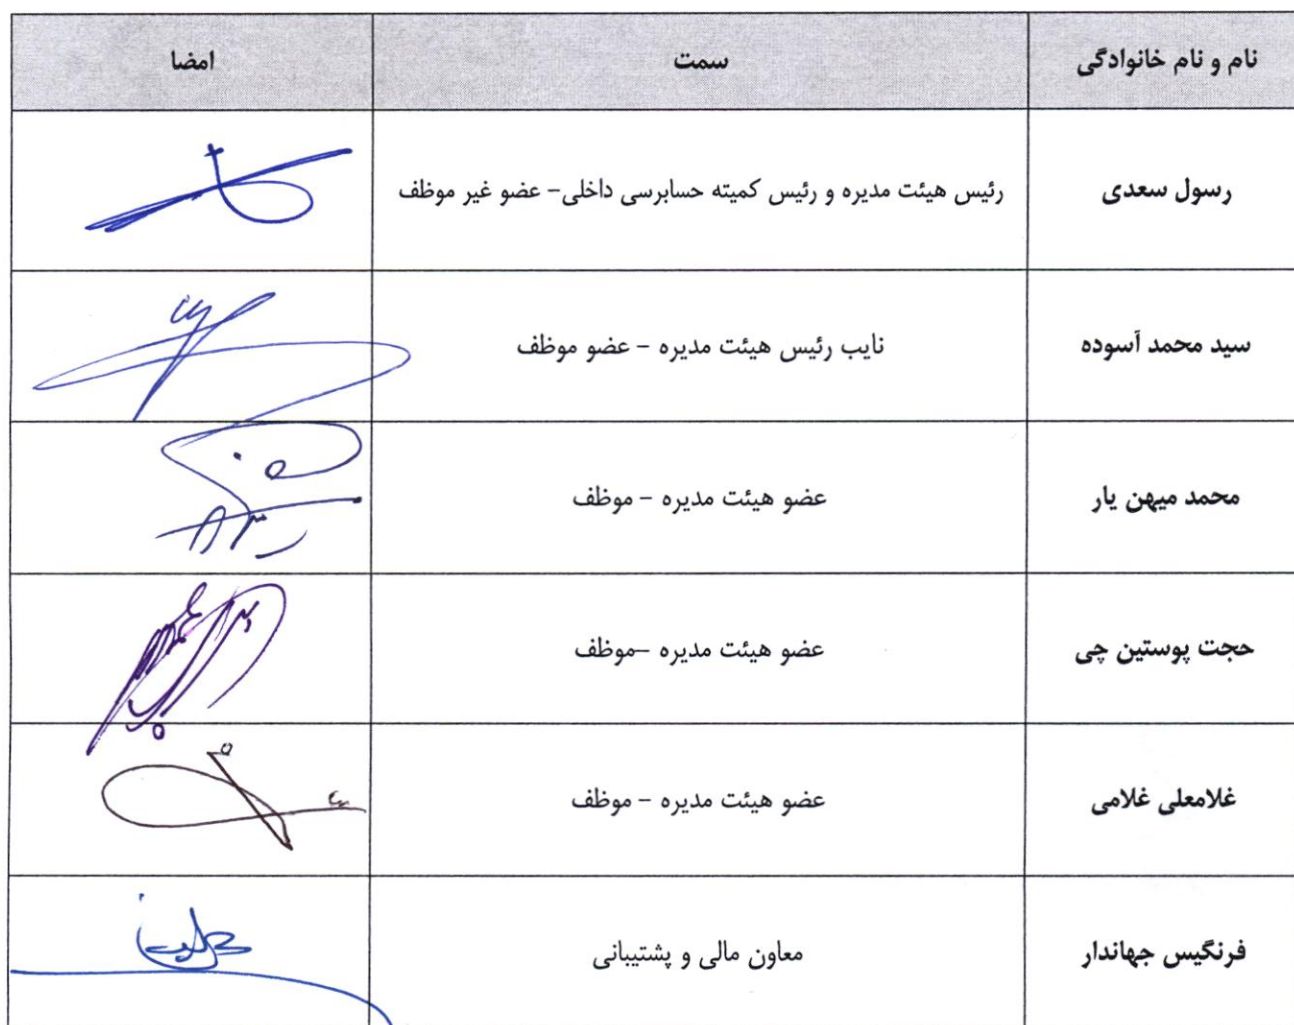 نام و نام خانوادگی سمت امضا
رسول سعدی رئیس هیئت مدیره و رئیس کمیته حسابرسی داخلی- عضو غیر موظف
سید محمد آسوده نایب رئیس هیئت مدیره - عضو موظف
محمد میهن یار عضو هیئت مدیره - موظف
حجت پوستین چی عضو هیئت مدیره -موظف
غلامعلی غلامی عضو هیئت مدیره - موظف
فرنگیس جهاندار معاون مالی و پشتیبانی